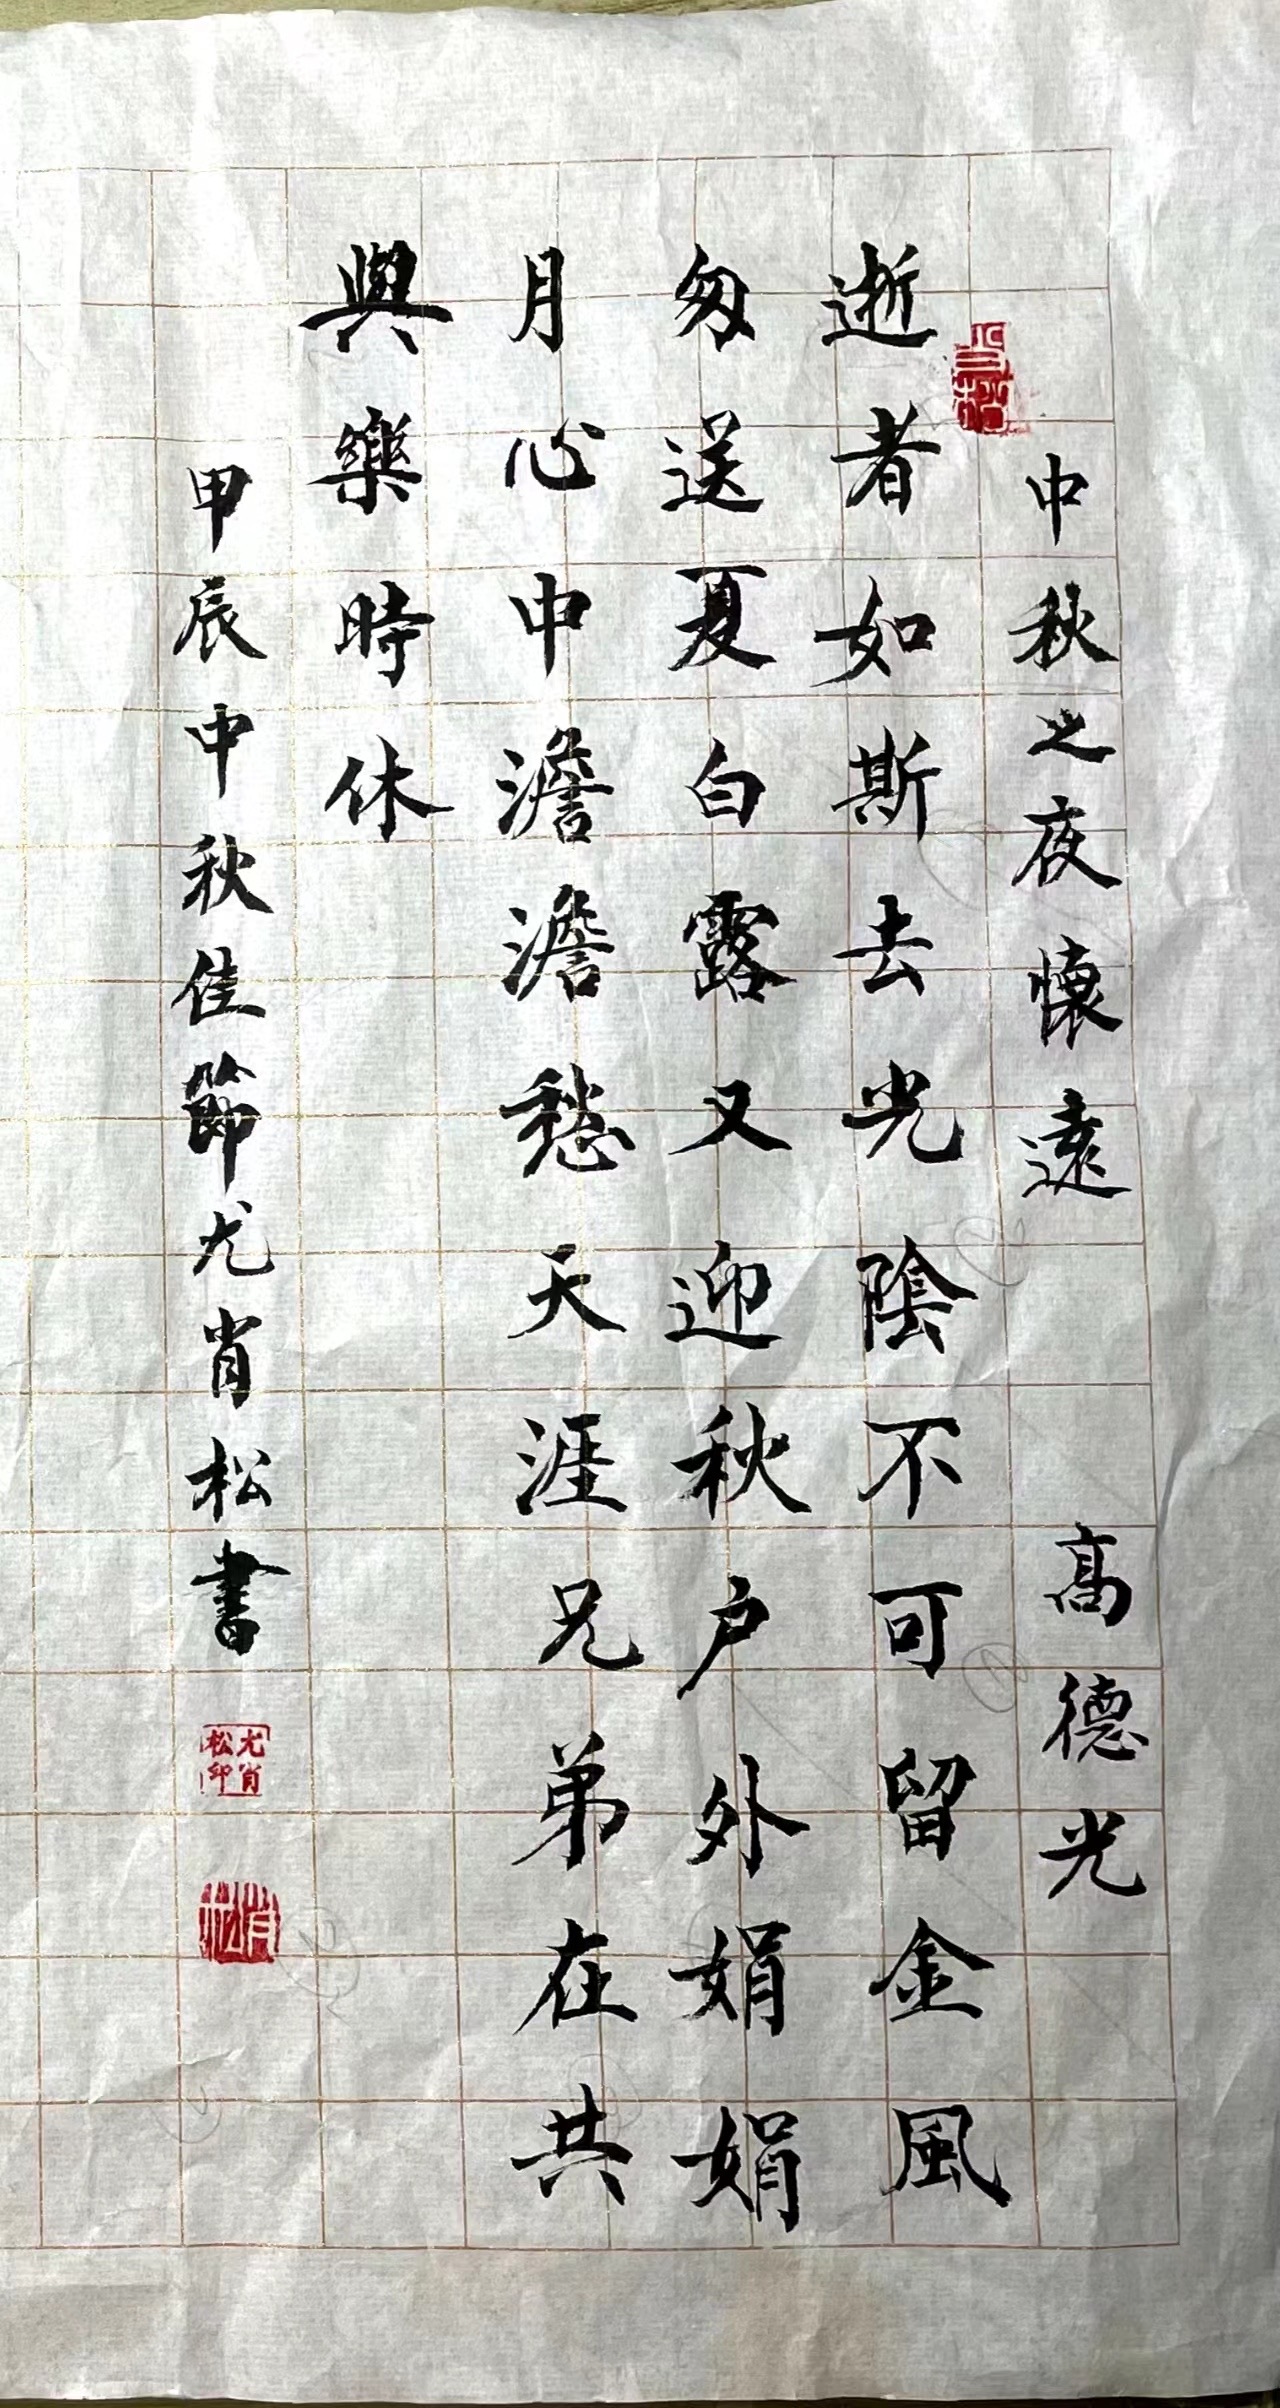 中秋之夜懷遠 高德光
逝者如斯去光陰不可留金風
匆送夏白露又迎秋户外娟娟
月心中澹澹愁天涯兄弟在共
與樂時休
甲辰中秋佳節尤肖松書
尤肖松印
肖松